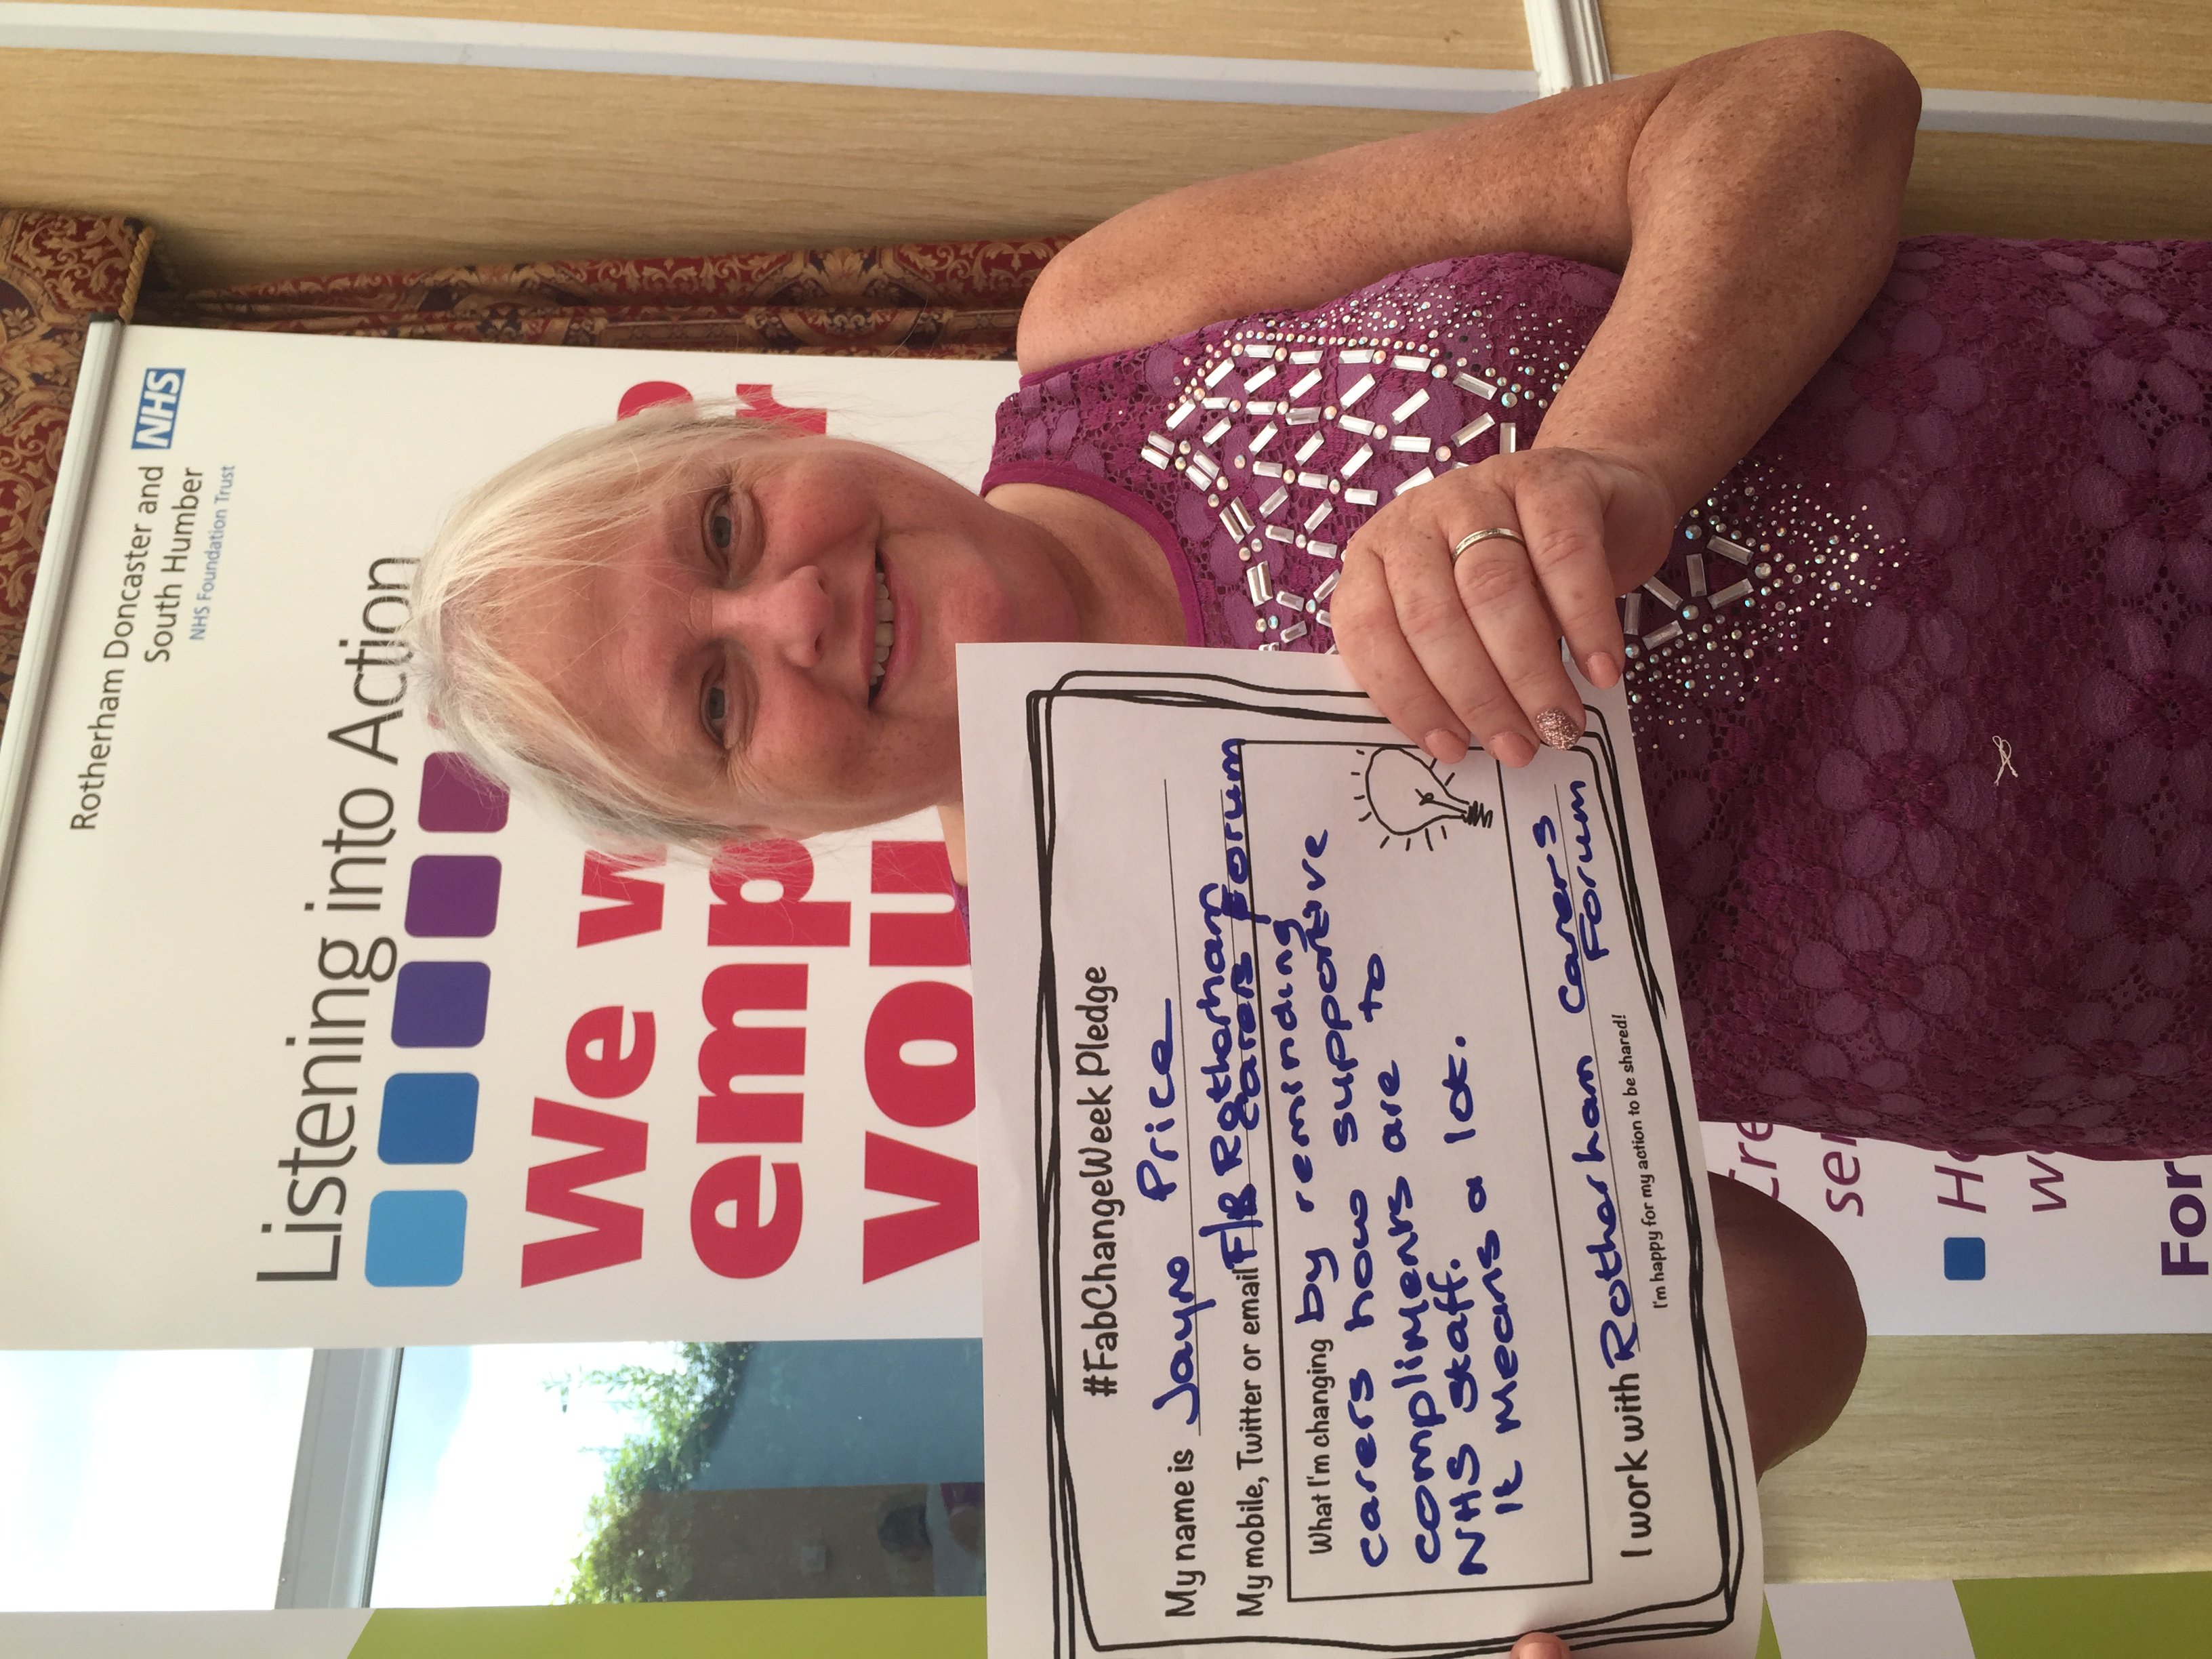 Rotherham Doncaster and NHS
South Humber
NHS Foundation Trust
Listening into Action
We w
emp er
you
#FabChangeWeek Pledge
My name is Jayne Price
My mobile, Twitter or email F/B Rotherham
Carers Forum
What I'm changing by reminding
carers how supportive
compliments are to
NHS Staff.
It means a lot.
I work with Rotherham Carers
Forum
I'm happy for my action to be shared!
Cre
ser
H
w
For